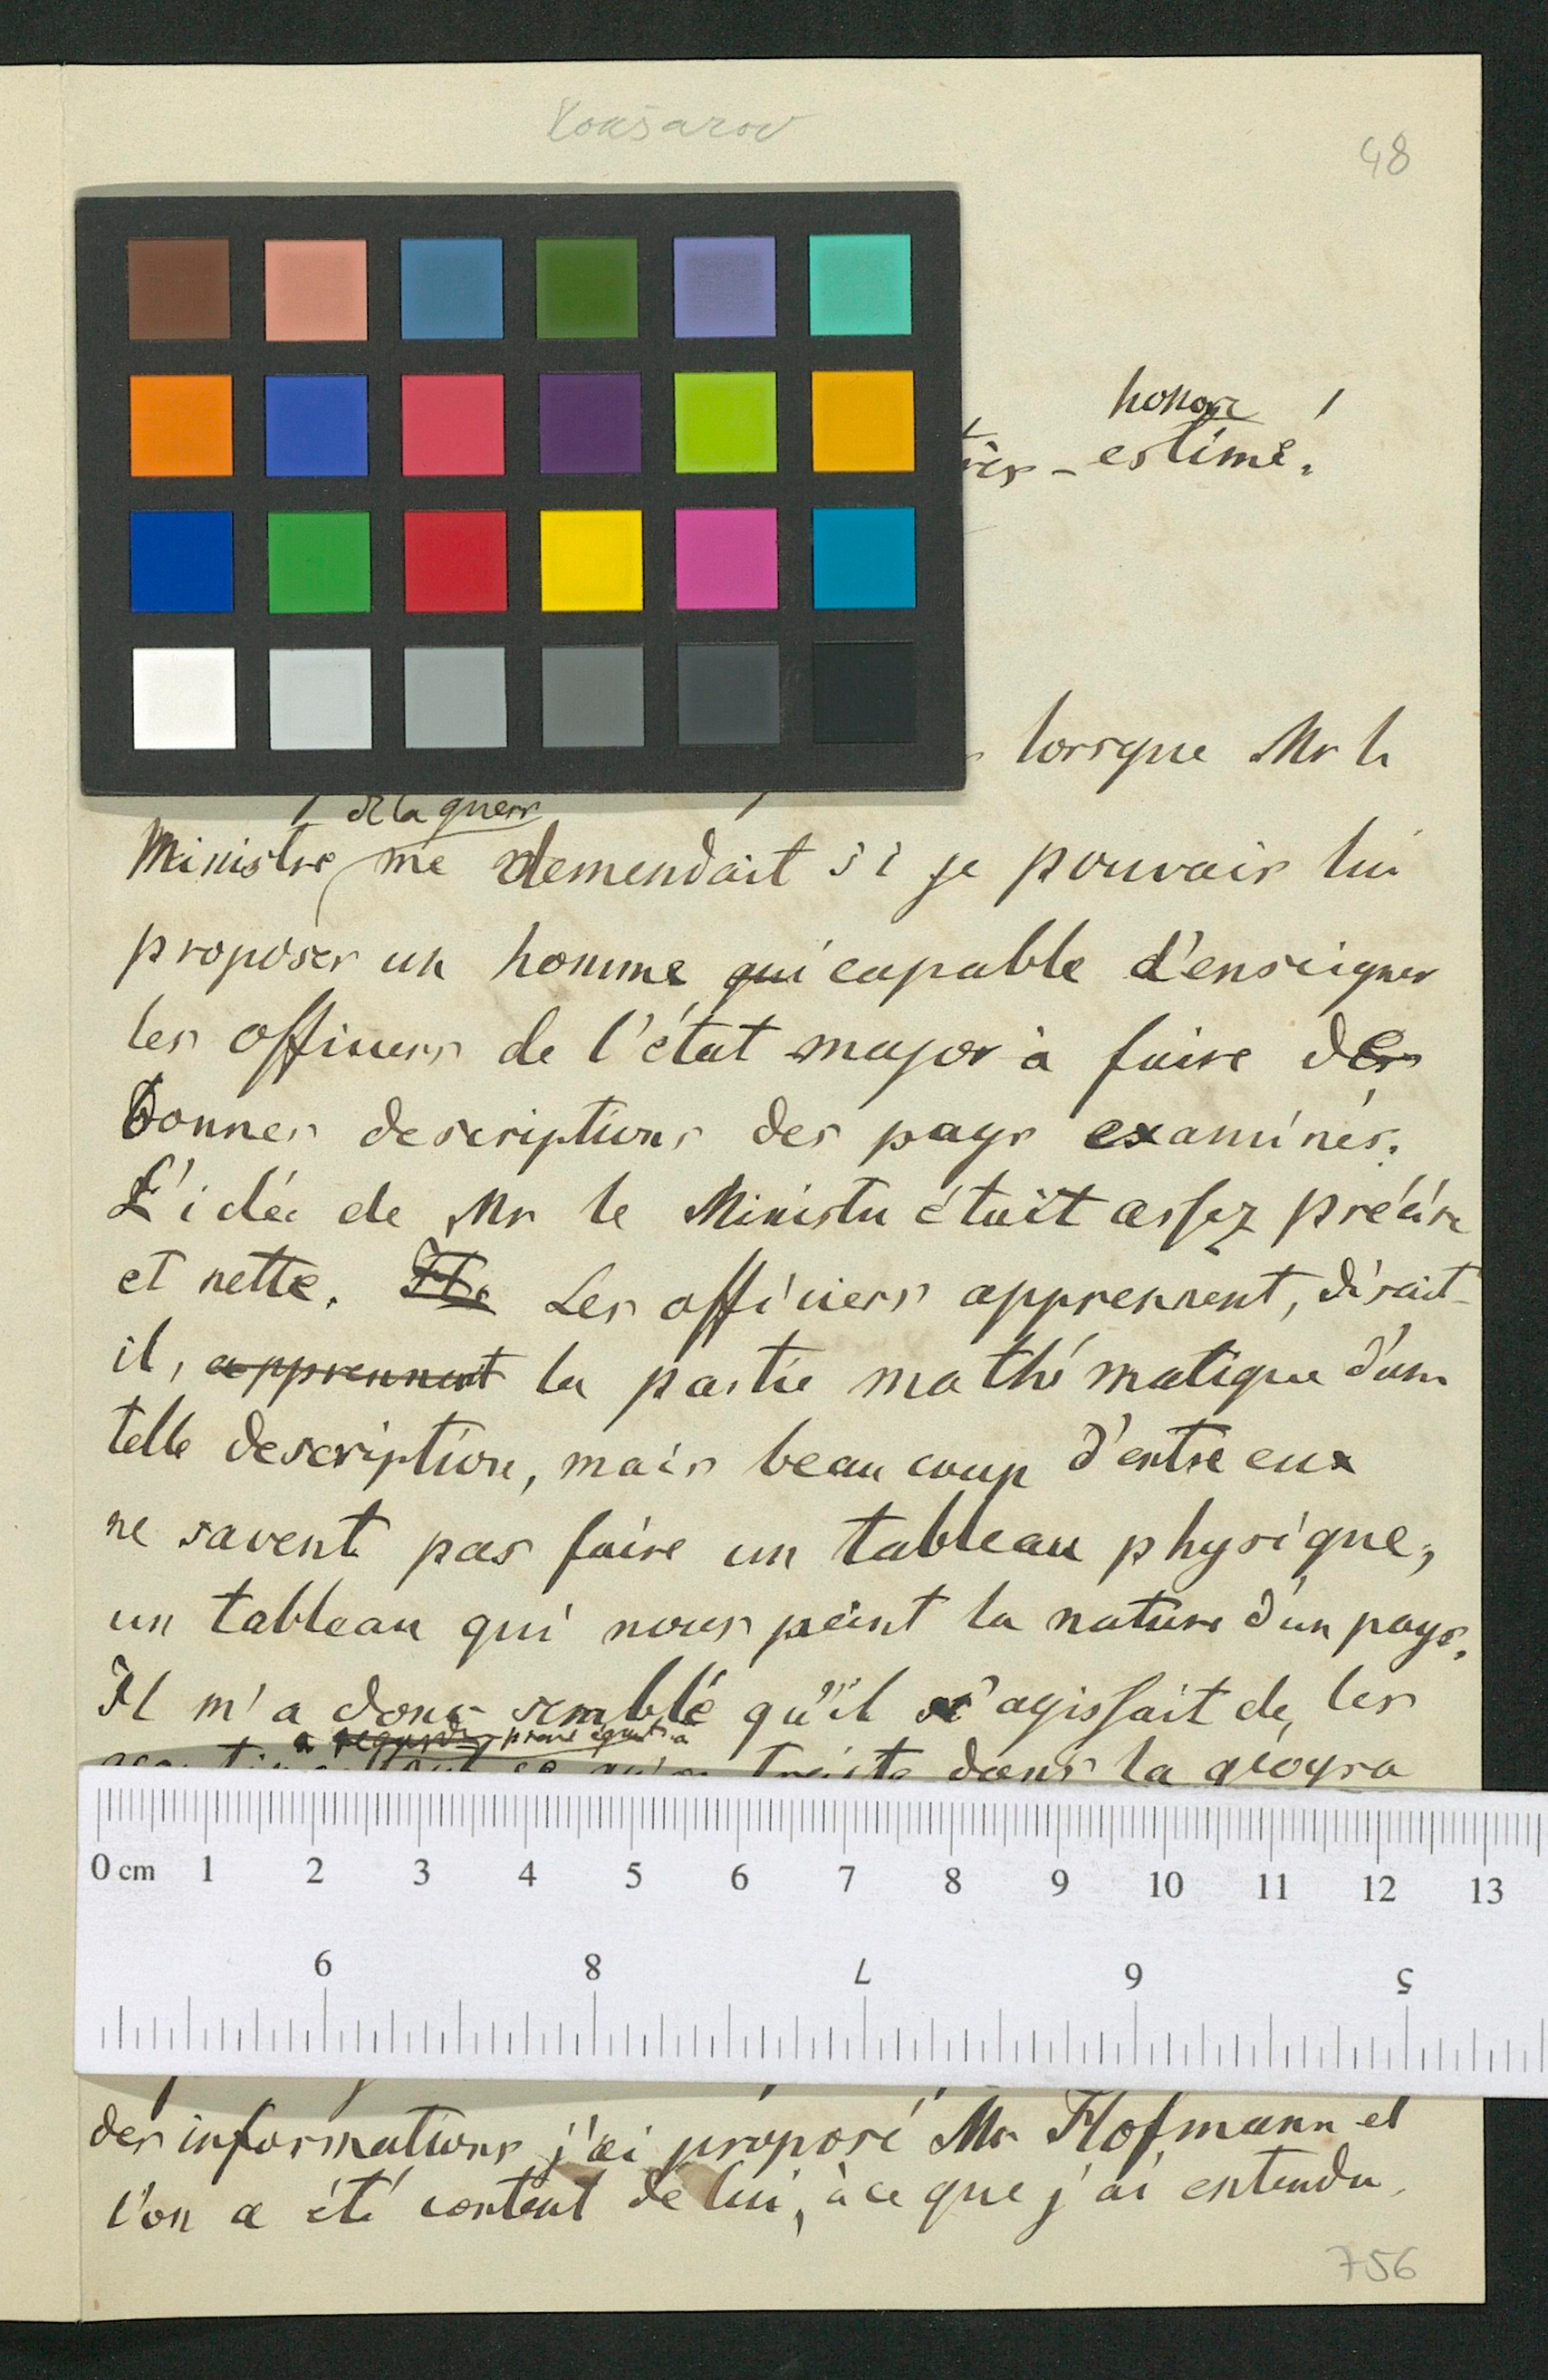 48
honoré
très-estimé.
lorsque Mr le
de la guerre
Ministre me demendait si je pouvais lui
proposer un homme qui capable d'enseigner
les officiers de l'état major à faire des
bonnes descriptions des pays examinés.
L'idée de Mr le Ministre était assez précise
et nette. Ils Les officiers apprennent, disait-
il, apprennent la partie mathématique d'une
telle description, mais beaucoup d'entre eux
ne savent pas faire un tableau physique,
un tableau qui nous peint la nature d'un pays.
Il m'a donc semblé qu'il s'agissait de, les
dans la géogra
0 cm 1 2 3 4 5 6 7 8 9 10 11 12 13
9 8 7 6 5
des informations j'ai proposé Mr Hofmann et
l'on a été content de lui, à ce que j'ai entendu.
756